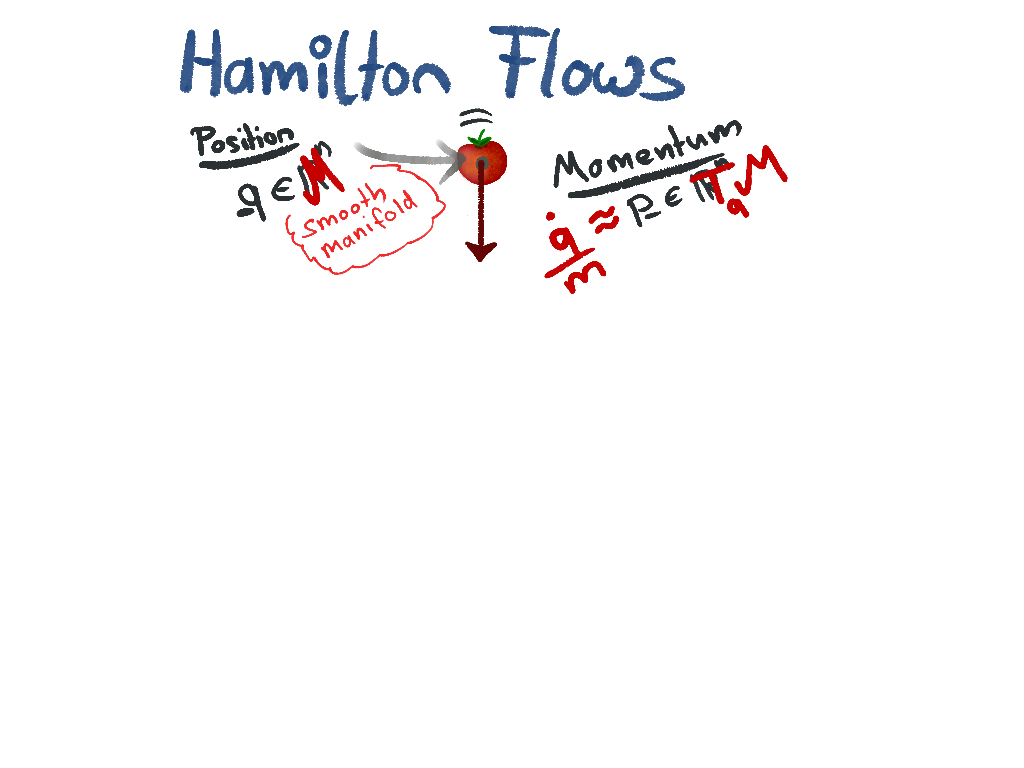 Hamilton Flows
Position
q ∈ M
smooth
manifold
Momentum
q̇/m ≈ p ∈ T_q M